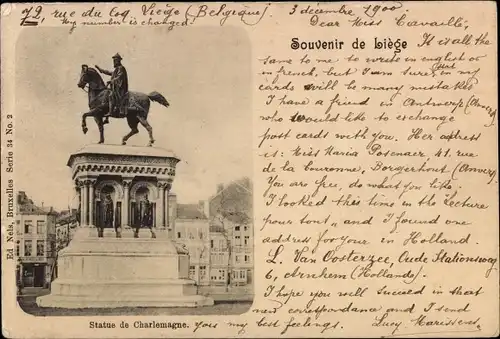 72, rue du Coq Liége (Belgique)
My number is changed.
3 decembre 1900.
Dear Miss Cavaillé,
Souvenir de Liège
It is all the
same to me to write in english or
in french, but I am sure, that in my
cards will be many mistakes
I have a friend in Antwerp (Anvers)
who would like to exchange
post cards with you. Her adress
is: Miss Maria Posenaer 41, rue
de la Couronne, Borgerhout (Anvers)
You are free, do what you like.
I looked this time in the "Lecture
pour tout" and I found one
address for you in Holland.
L. Van Oosterzee, Oude Stationsweg
6, Arnhem (Hollande).
I hope you will succeed in that
new correspondance and I send
you my best feelings. Lucy
Statue de Charlemagne.
Ed. Nels, Bruxelles Serie 34 No. 2